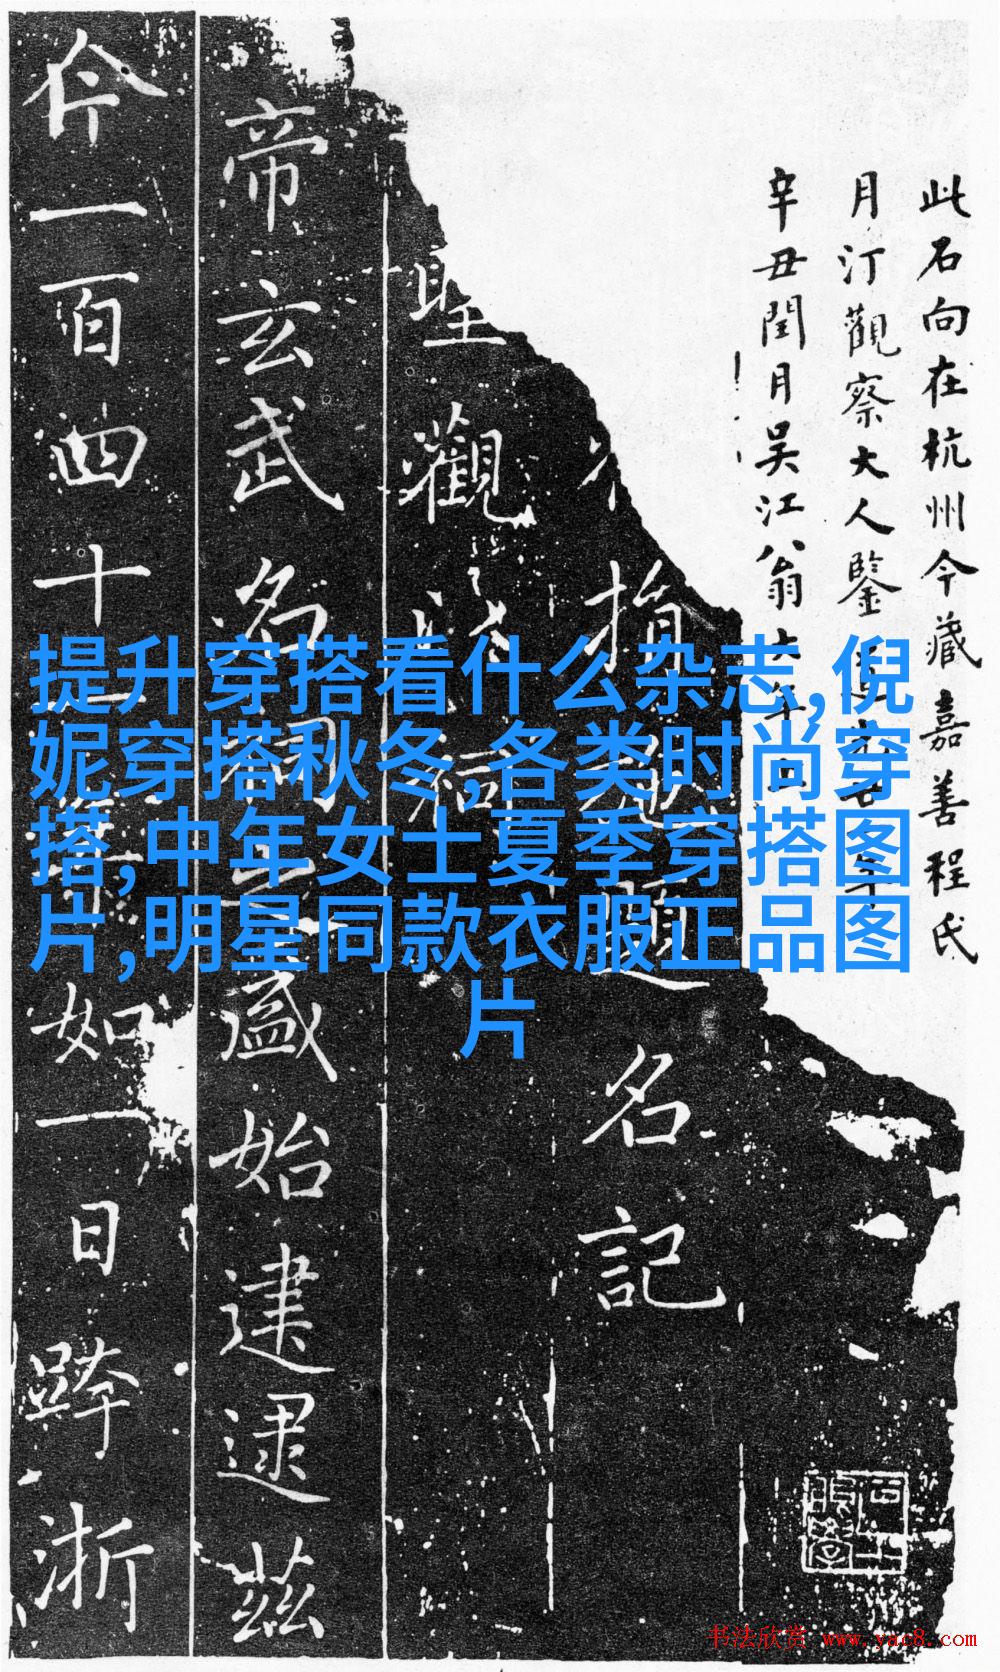 此石向在杭州今藏嘉善程氏
月汀觀察大人鑒
辛丑閏月吴江翁大年
指
題名記
聖觀
帝玄武名
盛始建逮茲
仐一百四十
如一日跨浙
提升穿搭看什么杂志,倪
妮穿搭秋冬,各类时尚穿
搭,中年女士夏季穿搭图
片,明星同款衣服正品图
片
书法欣赏 www.yac8.com